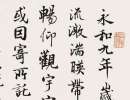 永和九年歲
流激湍暎帶
暢仰觀宇宙
或因寄所託